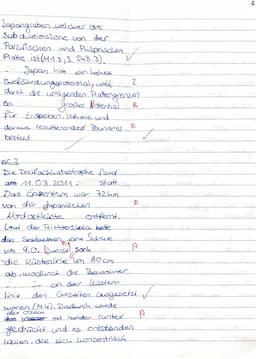 Japangraben, welcher die
Subduktionszone von der
Pazifischen und Philippinischen
Platte ist (M1.3, S. 243.3).
Japan hat ein hohes
Gefährdungspotential, weil
durch die umliegenden Plattengrenzen
ein großes Potential R
für Erdbeben, Vulkane und
daraus resultierenden Tsunamis R
besteht.
Die Dreifachkatastrophe fand
am 11.03.2011 statt.
Das Epizentrum war 72km
von der japanischen R
Nordostküste entfernt.
Laut der Richterskala hatte
das eine Stärke
von 9.0. sank A
die Küstenlinie um 80cm
ab, wodurch die Bewohner
an der Küsten-
linie den Gezeiten ausgesetzt
waren (M4). Dadurch wurde
der Ozean
mit runter A
gedrückt und es entstanden
Wellen, die sich konzentrisch